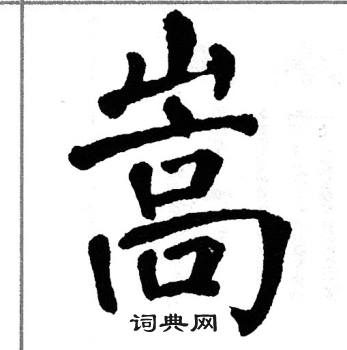 嵩
词典网